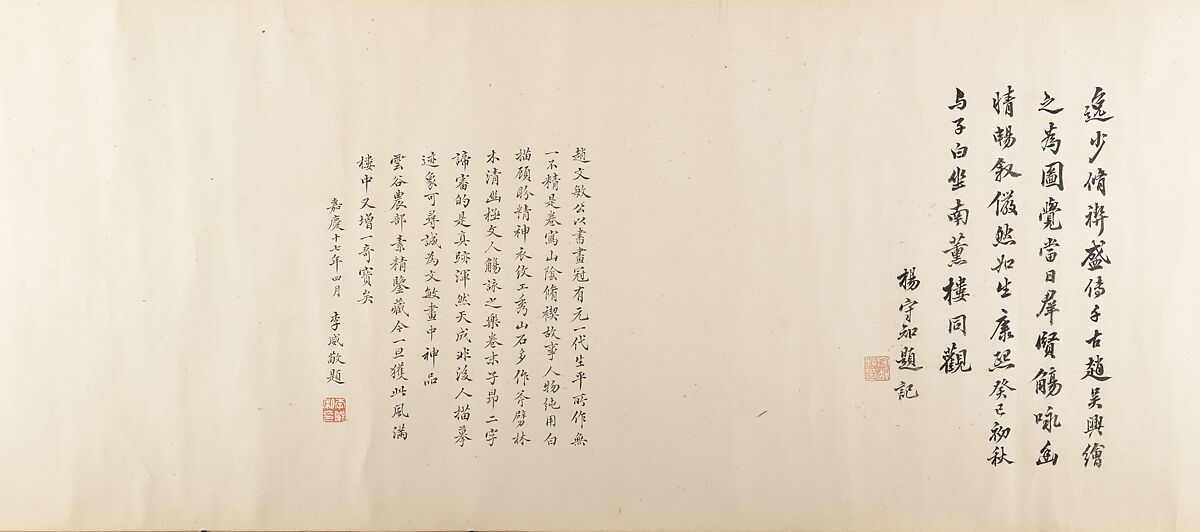 逸少脩禊盛傳千古趙吳興繪
之為圖覺當日羣賢觴咏幽
情暢叙儼然如生康熙癸巳初秋
与子白坐南薰樓同觀
楊守知題記
趙文敏公以書畫冠有元一代生平所作無
一不精是卷寫山陰脩禊故事人物純用白
描顧盼精神衣紋工秀山石多作斧劈林
木清幽極文人觴詠之樂卷末子昂二字
諦審的是真跡渾然天成非後人描摹
迹象可尋誠為文敏畫中神品
雲谷農部素精鑒藏今一旦獲此風滿
樓中又增一奇寶矣
嘉慶十七年四月 李威敬題